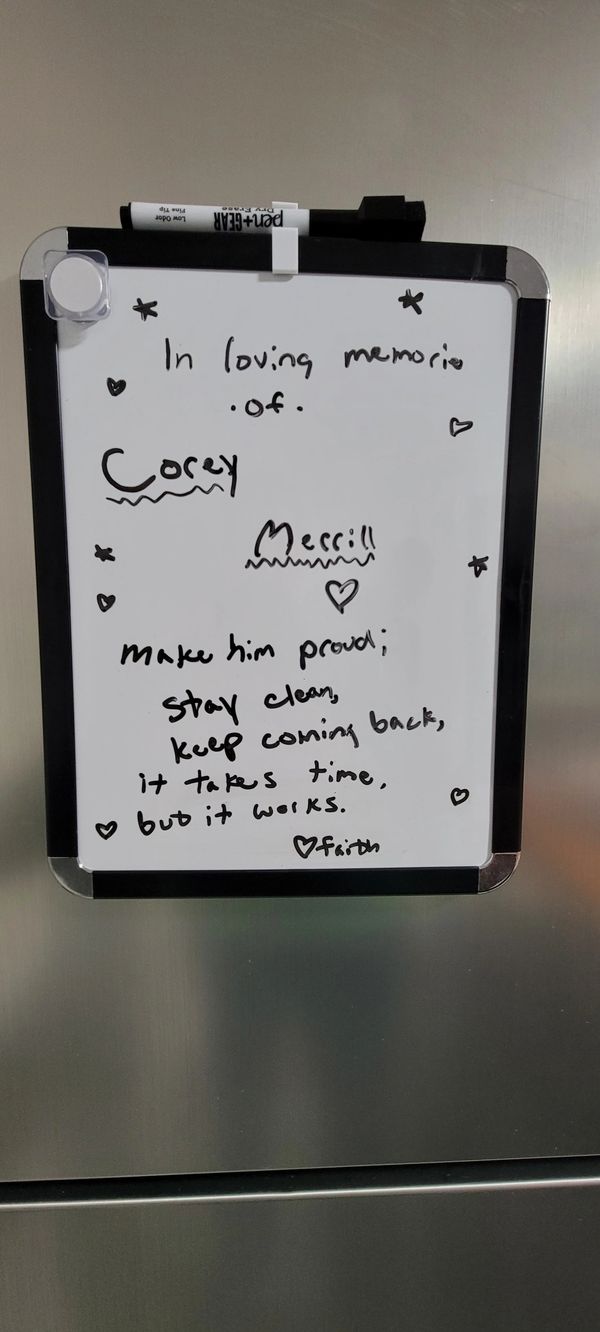 pen+GEAR
Dry Erase
Low Odor
Fine Tip
In loving memorie
.of.
Corey
Merrill
make him proud;
stay clean,
keep coming back,
it takes time,
but it works.
♡faith